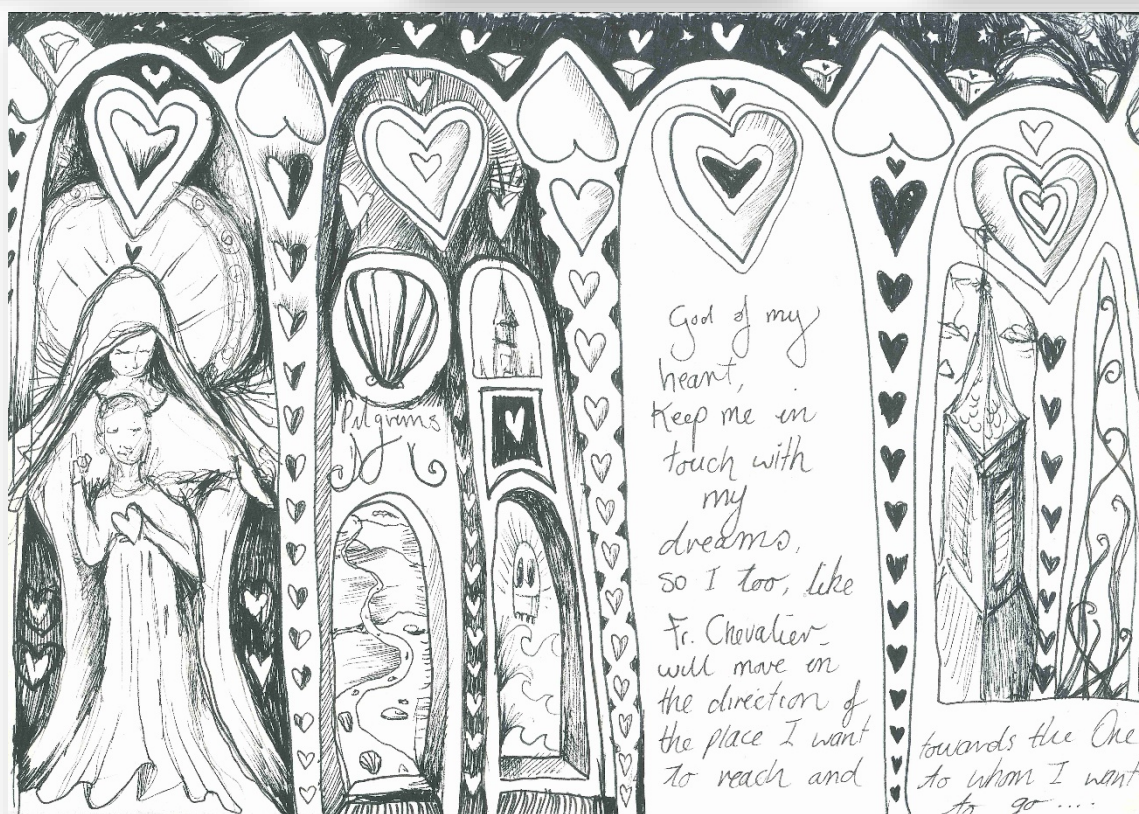 Pilgrims
God of my
heart,
Keep me in
touch with
my
dreams,
so I too, like
Fr. Chevalier
will move in
the direction of
the place I want
to reach and
towards the One
to whom I want
to go ....